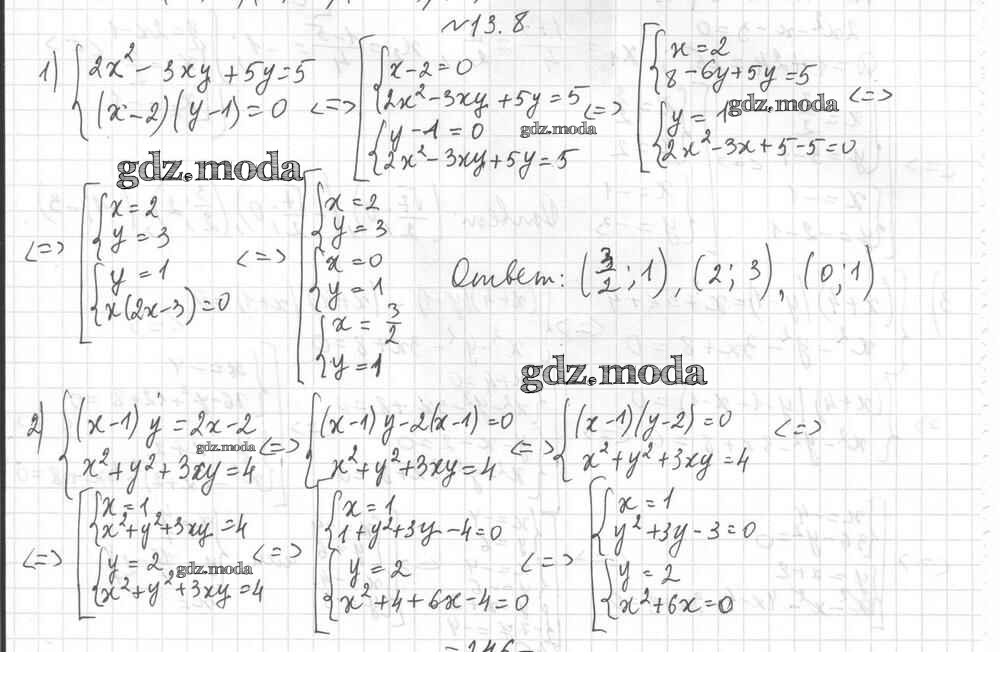 №13.8
1) { 2x² - 3xy + 5y = 5
(x-2)(y-1) = 0 <=>
[ { x-2=0
2x²-3xy+5y=5
{ y-1=0
2x²-3xy+5y=5 <=>
[ { x=2
8-6y+5y=5
{ y=1
2x²-3x+5-5=0 <=>
gdz.moda
gdz.moda
gdz.moda
<=> [ { x=2
y=3
{ y=1
x(2x-3)=0
<=> [ { x=2
y=3
{ x=0
y=1
{ x=3/2
y=1
Ответ: (3/2; 1), (2; 3), (0; 1)
gdz.moda
2) { (x-1)y=2x-2
x²+y²+3xy=4 <=>
gdz.moda
{ (x-1)y-2(x-1)=0
x²+y²+3xy=4 <=>
{ (x-1)(y-2)=0
x²+y²+3xy=4 <=>
<=> [ { x=1
x²+y²+3xy=4
{ y=2
x²+y²+3xy=4
gdz.moda
<=> [ { x=1
1+y²+3y-4=0
{ y=2
x²+4+6x-4=0
<=> [ { x=1
y²+3y-3=0
{ y=2
x²+6x=0